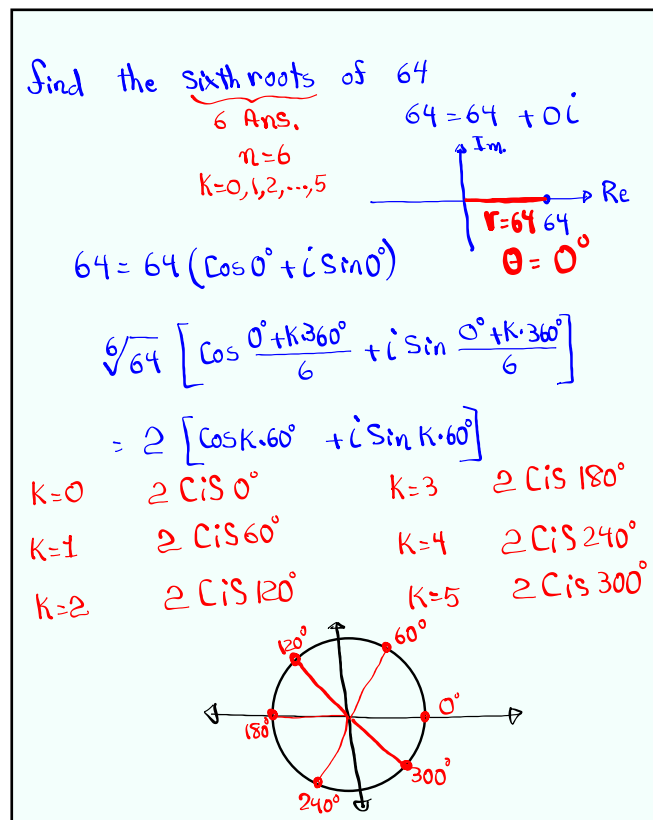 find the sixth roots of 64
6 Ans.
64 = 64 + 0i
n=6
K=0,1,2,...,5
Im.
Re
r=64 64
θ = 0°
64 = 64 (Cos 0° + i Sin 0°)
⁶√64 [Cos (0°+K·360°)/6 + i Sin (0°+K·360°)/6]
= 2 [Cos K·60° + i Sin K·60°]
K=0 2 CiS 0° K=3 2 CiS 180°
K=1 2 CiS 60° K=4 2 CiS 240°
K=2 2 CiS 120° K=5 2 Cis 300°
120° 60°
0°
180°
300°
240°